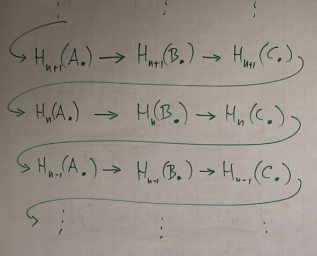 H_{n+1}(A.) → H_{n+1}(B.) → H_{n+1}(C.)
H_n(A.) → H_n(B.) → H_n(C.)
H_{n-1}(A.) → H_{n-1}(B.) → H_{n-1}(C.)